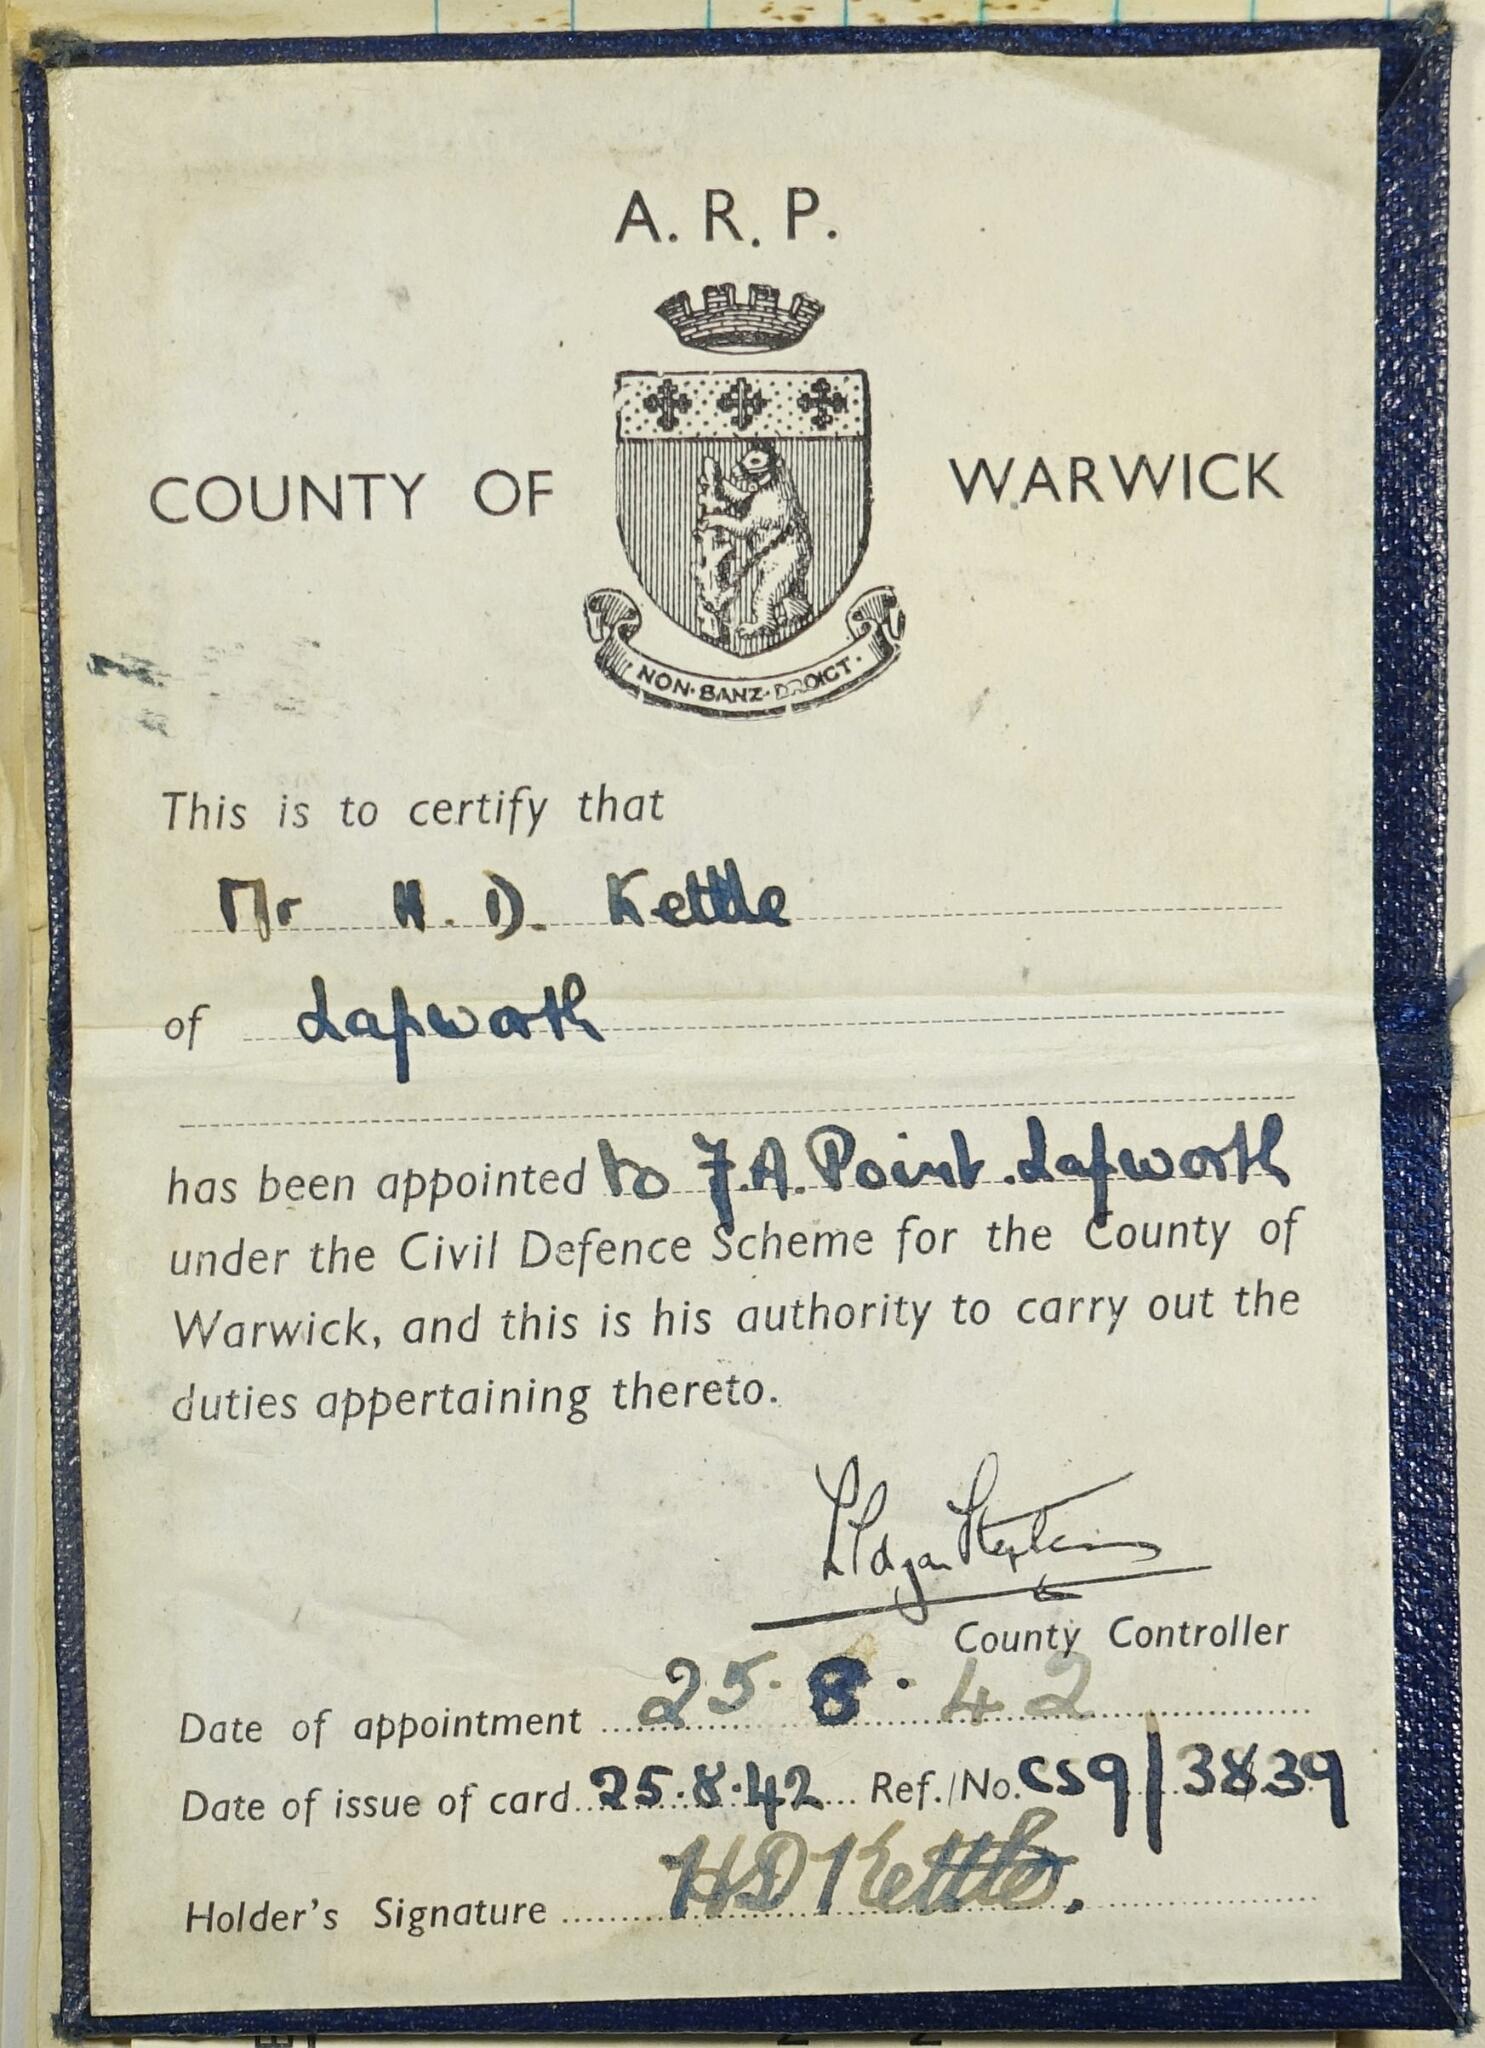 A. R. P.
COUNTY OF WARWICK
NON · SANZ · DROICT ·
This is to certify that
Mr H. D. Kettle
of Lapworth
has been appointed to F.A. Point. Lapworth
under the Civil Defence Scheme for the County of
Warwick, and this is his authority to carry out the
duties appertaining thereto.
Edgar Stephens
County Controller
Date of appointment 25. 8. 42
Date of issue of card 25.8.42 Ref./No. CS9/3839
Holder's Signature HD Kettle.